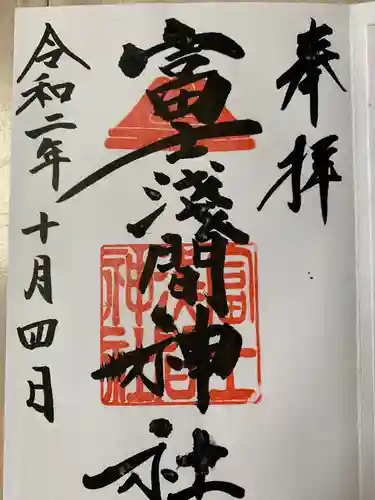 奉拝
富士浅間神社
富士浅間神社
令和二年十月四日